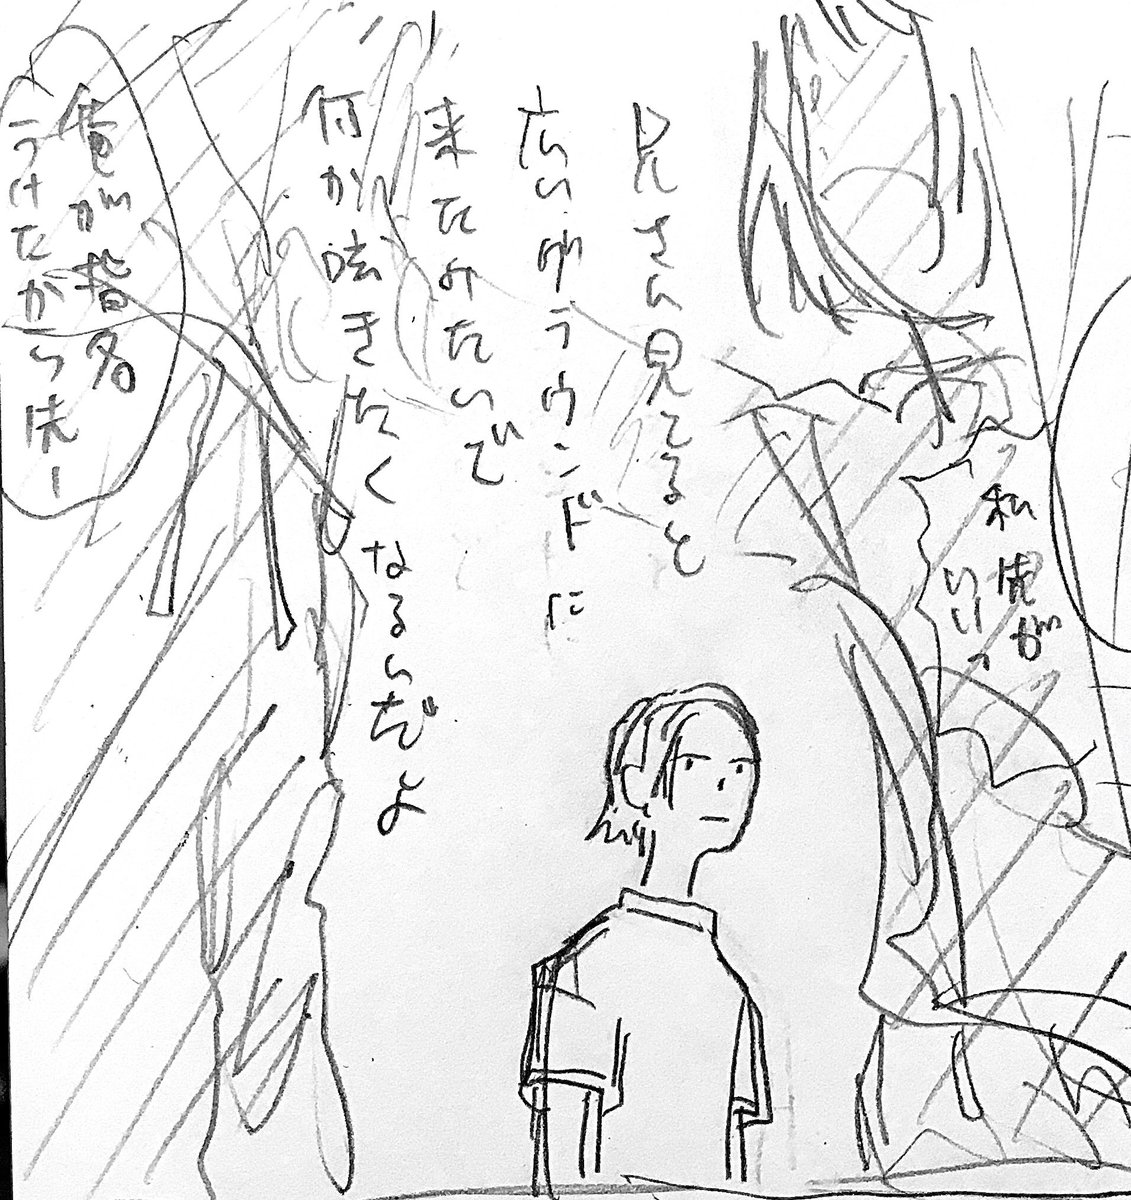 私先が
いいっ
兄さん見てると
広いゆうウンドに
来たみたいで
何か呟きたくなるんだよ
俺が指名
うけたから先ー